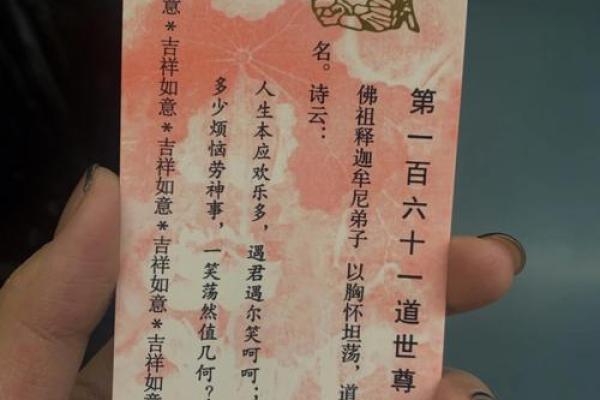 第一百六十一道世尊
佛祖释迦牟尼弟子 以胸怀坦荡，道
名。诗云：
人生本应欢乐多，遇君遇尔笑呵呵；
多少烦恼劳神事，一笑荡然值几何？
意*吉祥如意*吉祥如意*吉祥如意*吉祥如意